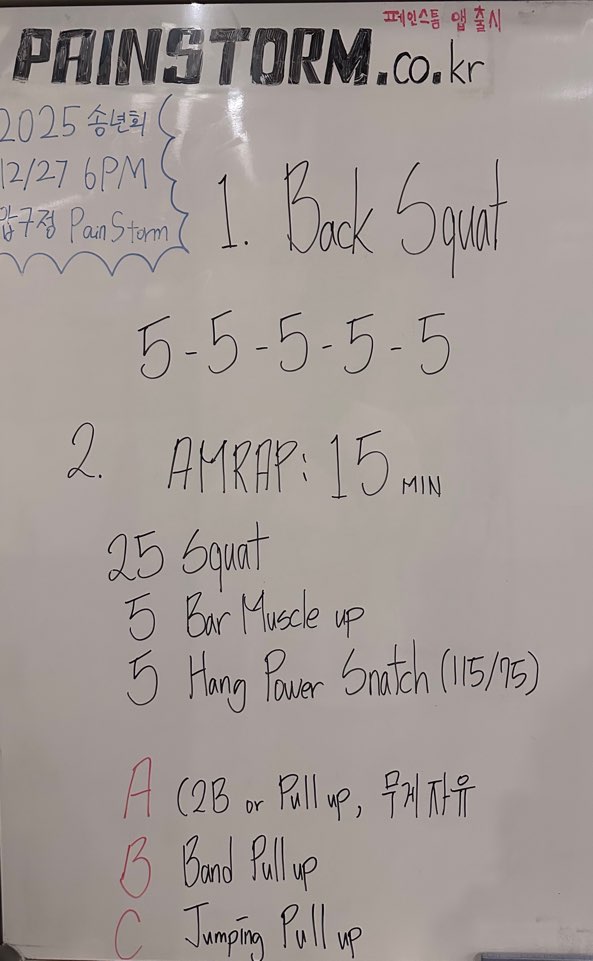 페인스톰 앱 출시
PAINSTORM.co.kr
2025 송년회
12/27 6PM
압구정 PainStorm
1. Back Squat
5-5-5-5-5
2. AMRAP: 15 MIN
25 Squat
5 Bar Muscle up
5 Hang Power Snatch (115/75)
A (2B or Pull up, 무게 자유
B Band Pull up
C Jumping Pull up